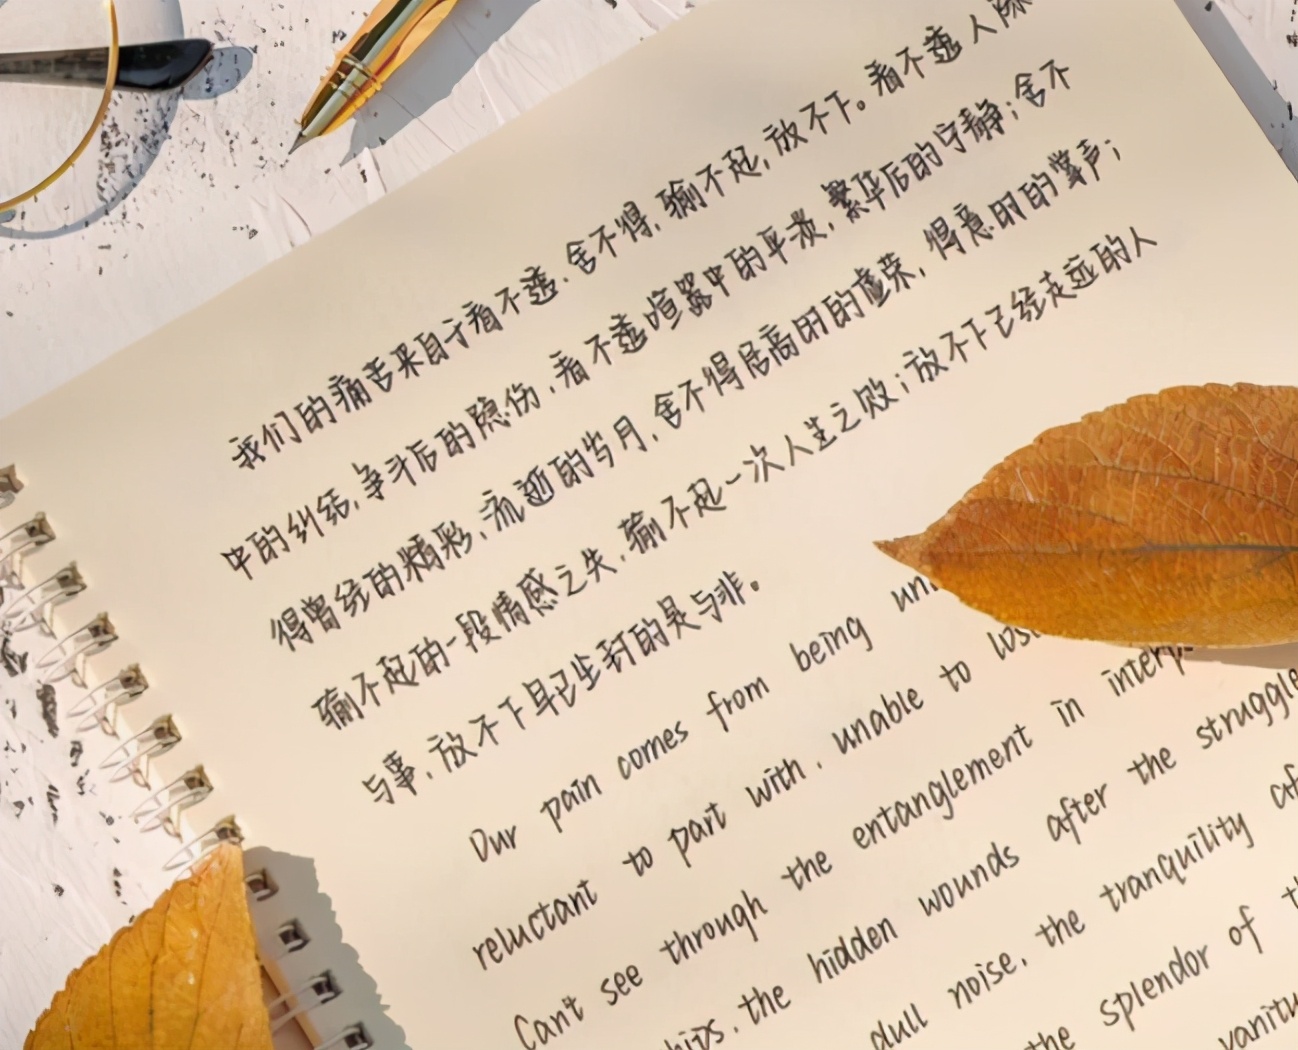 我们的痛苦来自于看不透、舍不得、输不起、放不下。看不透人际
中的纠结、争斗后的隐伤、看不透喧嚣中的平淡、繁华后的宁静；舍不
得曾经的精彩、流逝的岁月、舍不得居高时的虚荣、得意时的掌声；
输不起的一段情感之失、输不起一次人生之败；放不下已经走远的人
与事、放不下早已尘封的是与非。
Our pain comes from being
reluctant to part with, unable to
Can't see through the entanglement in
the hidden wounds after the struggle
dull noise, the tranquility
the splendor of
vanity